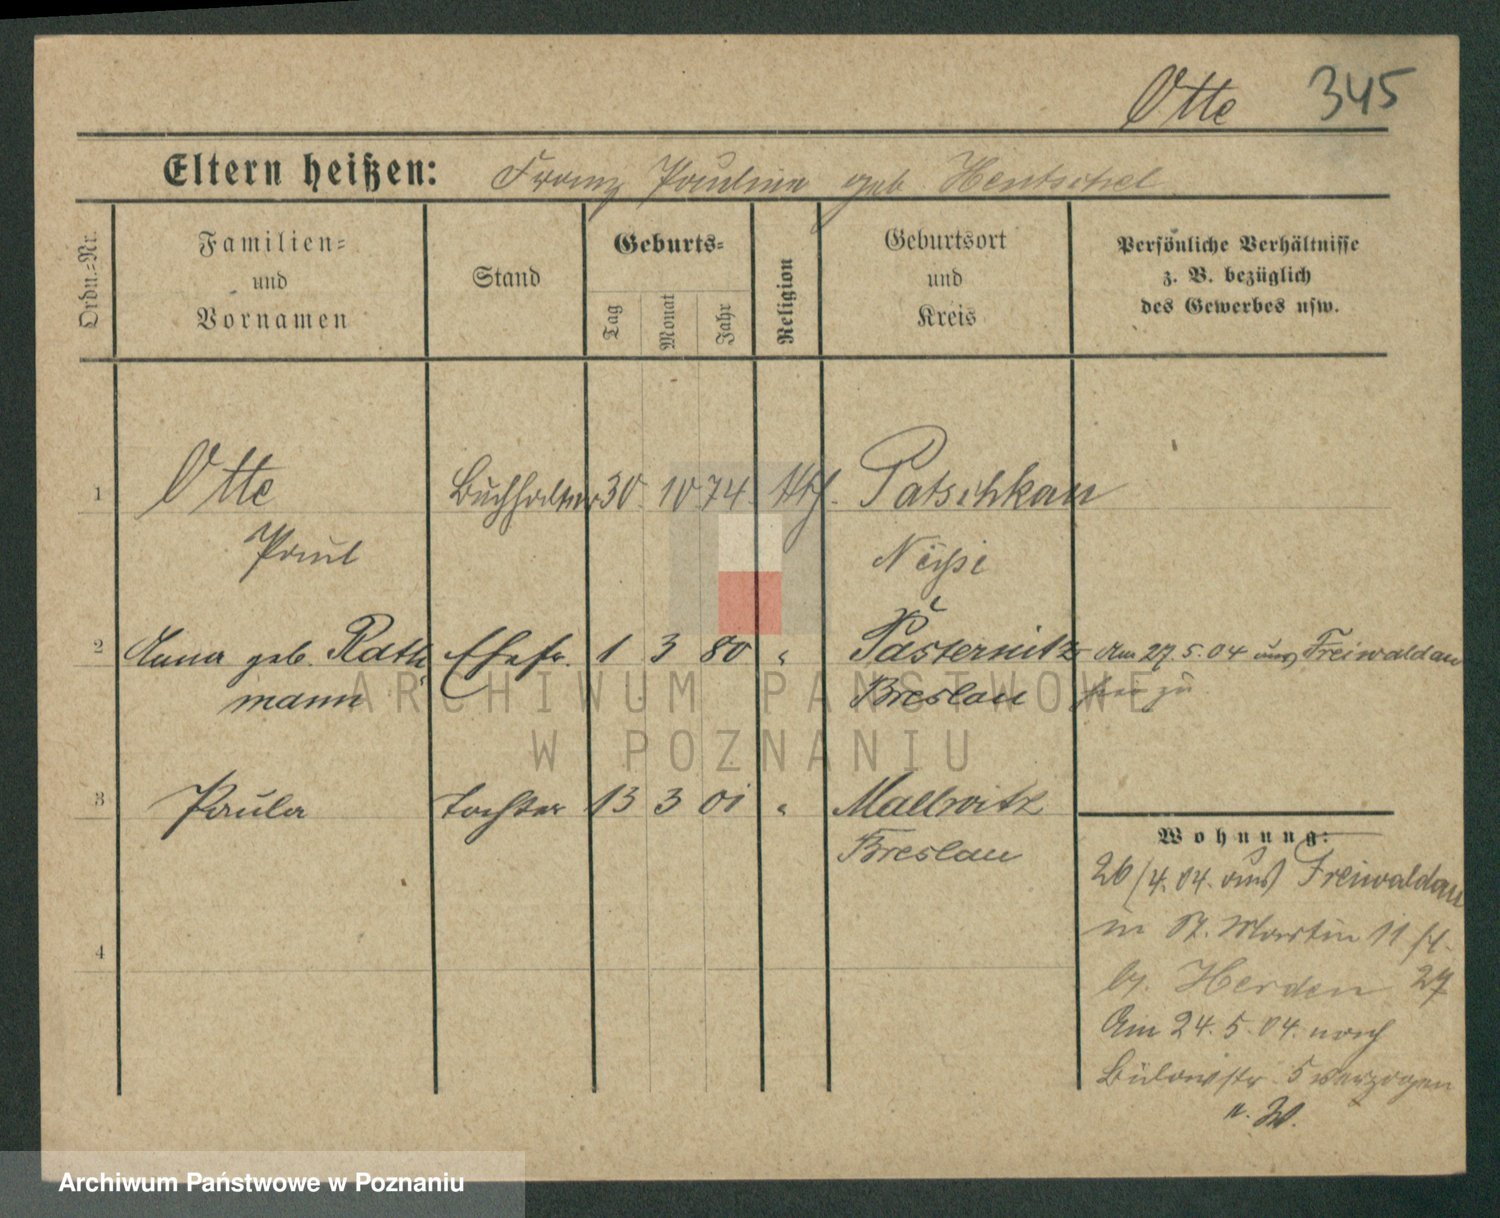 Otte 345
Eltern heißen: Franz Pauline geb. Hentschel
Ordn.-Nr.
Familien-
und
Vornamen
Stand
Geburts-
Tag
Monat
Jahr
Religion
Geburtsort
und
Kreis
Persönliche Verhältnisse
z. B. bezüglich
des Gewerbes usw.
1 Otte Buchhalter 30. 10 74. kth. Patschkau
Paul Neisse
2 Anna geb. Rath Ehefr. 1 3 80 " Pasternitz Am 27.5.04 aus Freiwaldau
mann Breslau hierzu
3 Paula Tochter 13 3 01 " Mallwitz
Breslau
4
Wohnung:
26/4.04. aus Freiwaldau
in St. Martin 11
bei Herden 27
Am 24.5.04. nach
Bülowstr 5 verzogen
ARCHIWUM PAŃSTWOWE
W POZNANIU
Archiwum Państwowe w Poznaniu